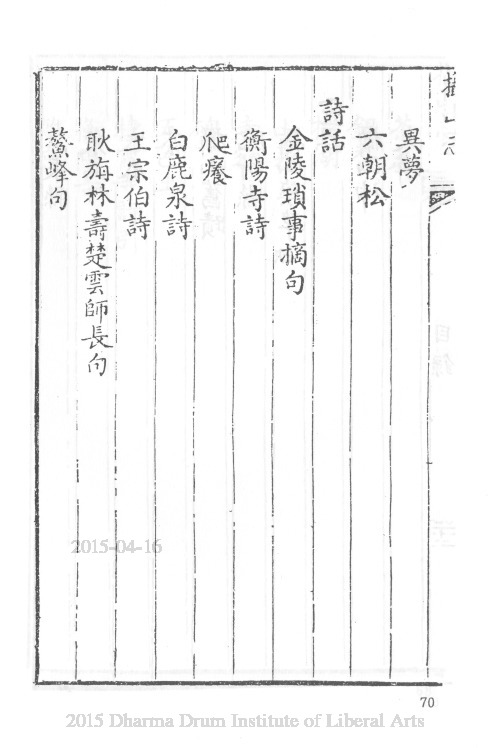 異夢
六朝松
詩話
金陵瑣事摘句
衡陽寺詩
爬癢
白鹿泉詩
王宗伯詩
耿旃林壽楚雲師長句
鰲峰句
2015-04-16
70
2015 Dharma Drum Institute of Liberal Arts